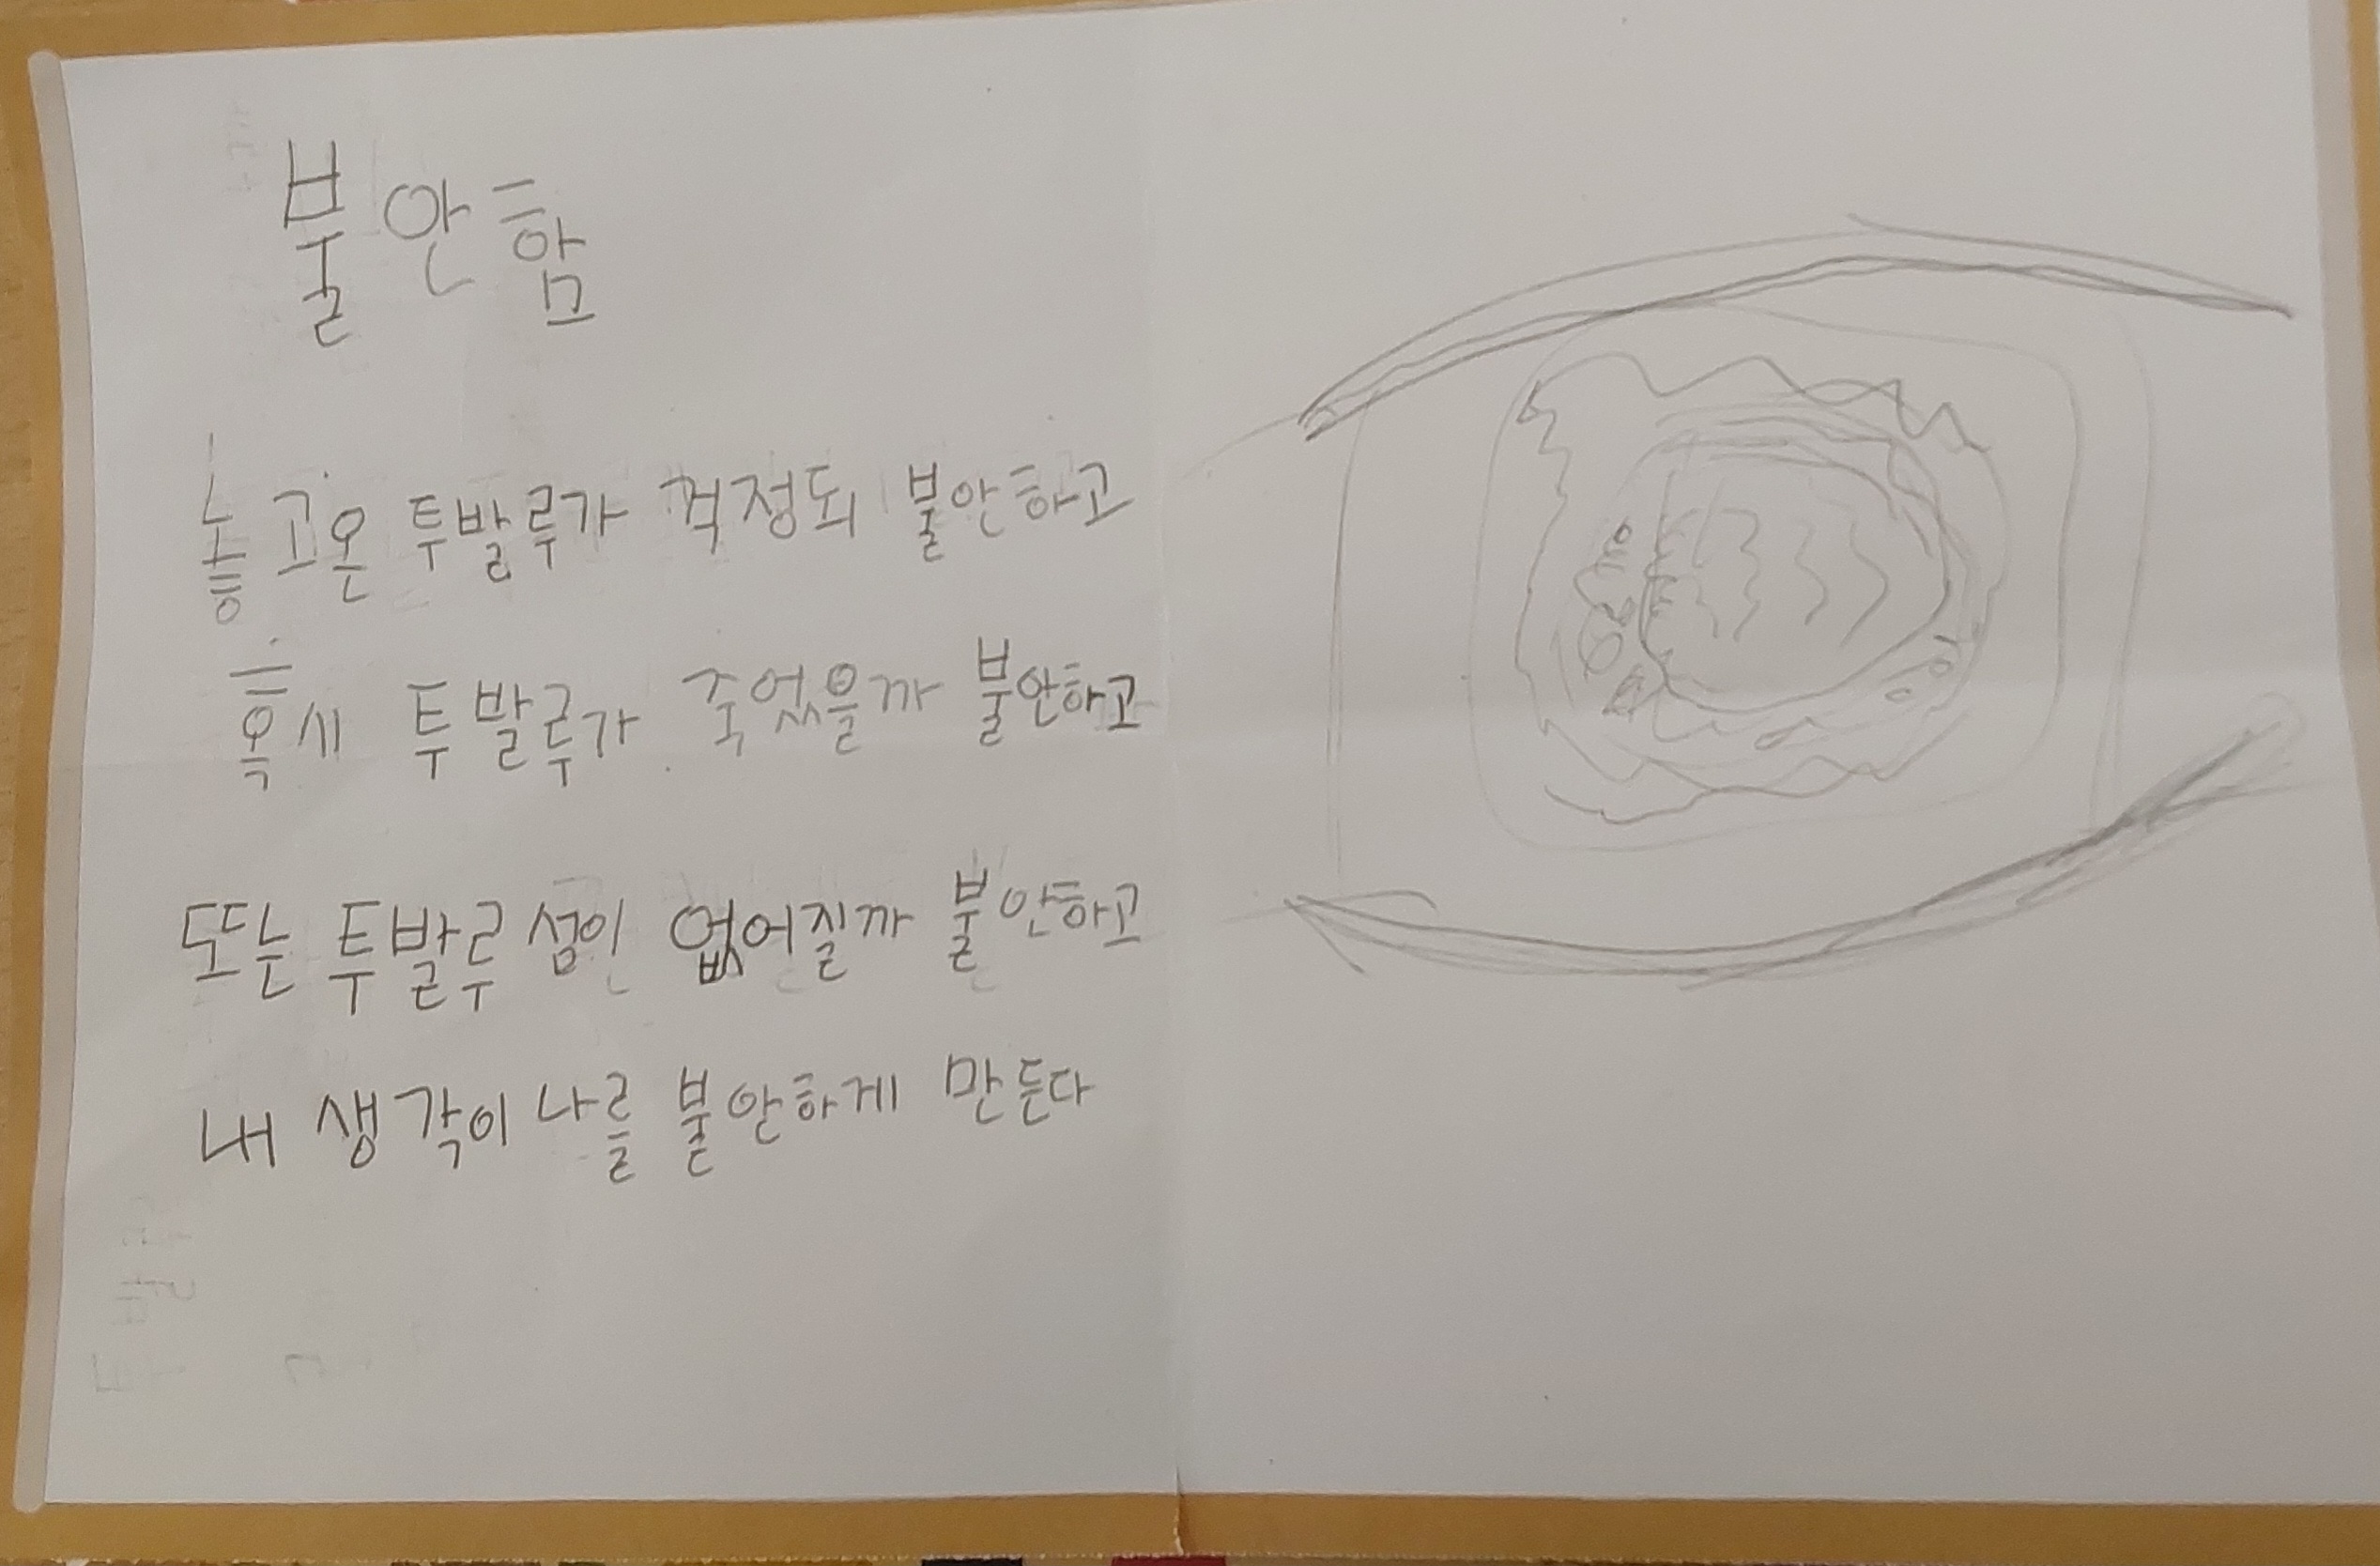 불안함
놓고온 투발루가 걱정되 불안하고
혹시 투발루가 죽었을까 불안하고
또는 투발루 섬이 없어질까 불안하고
내 생각이 나를 불안하게 만든다